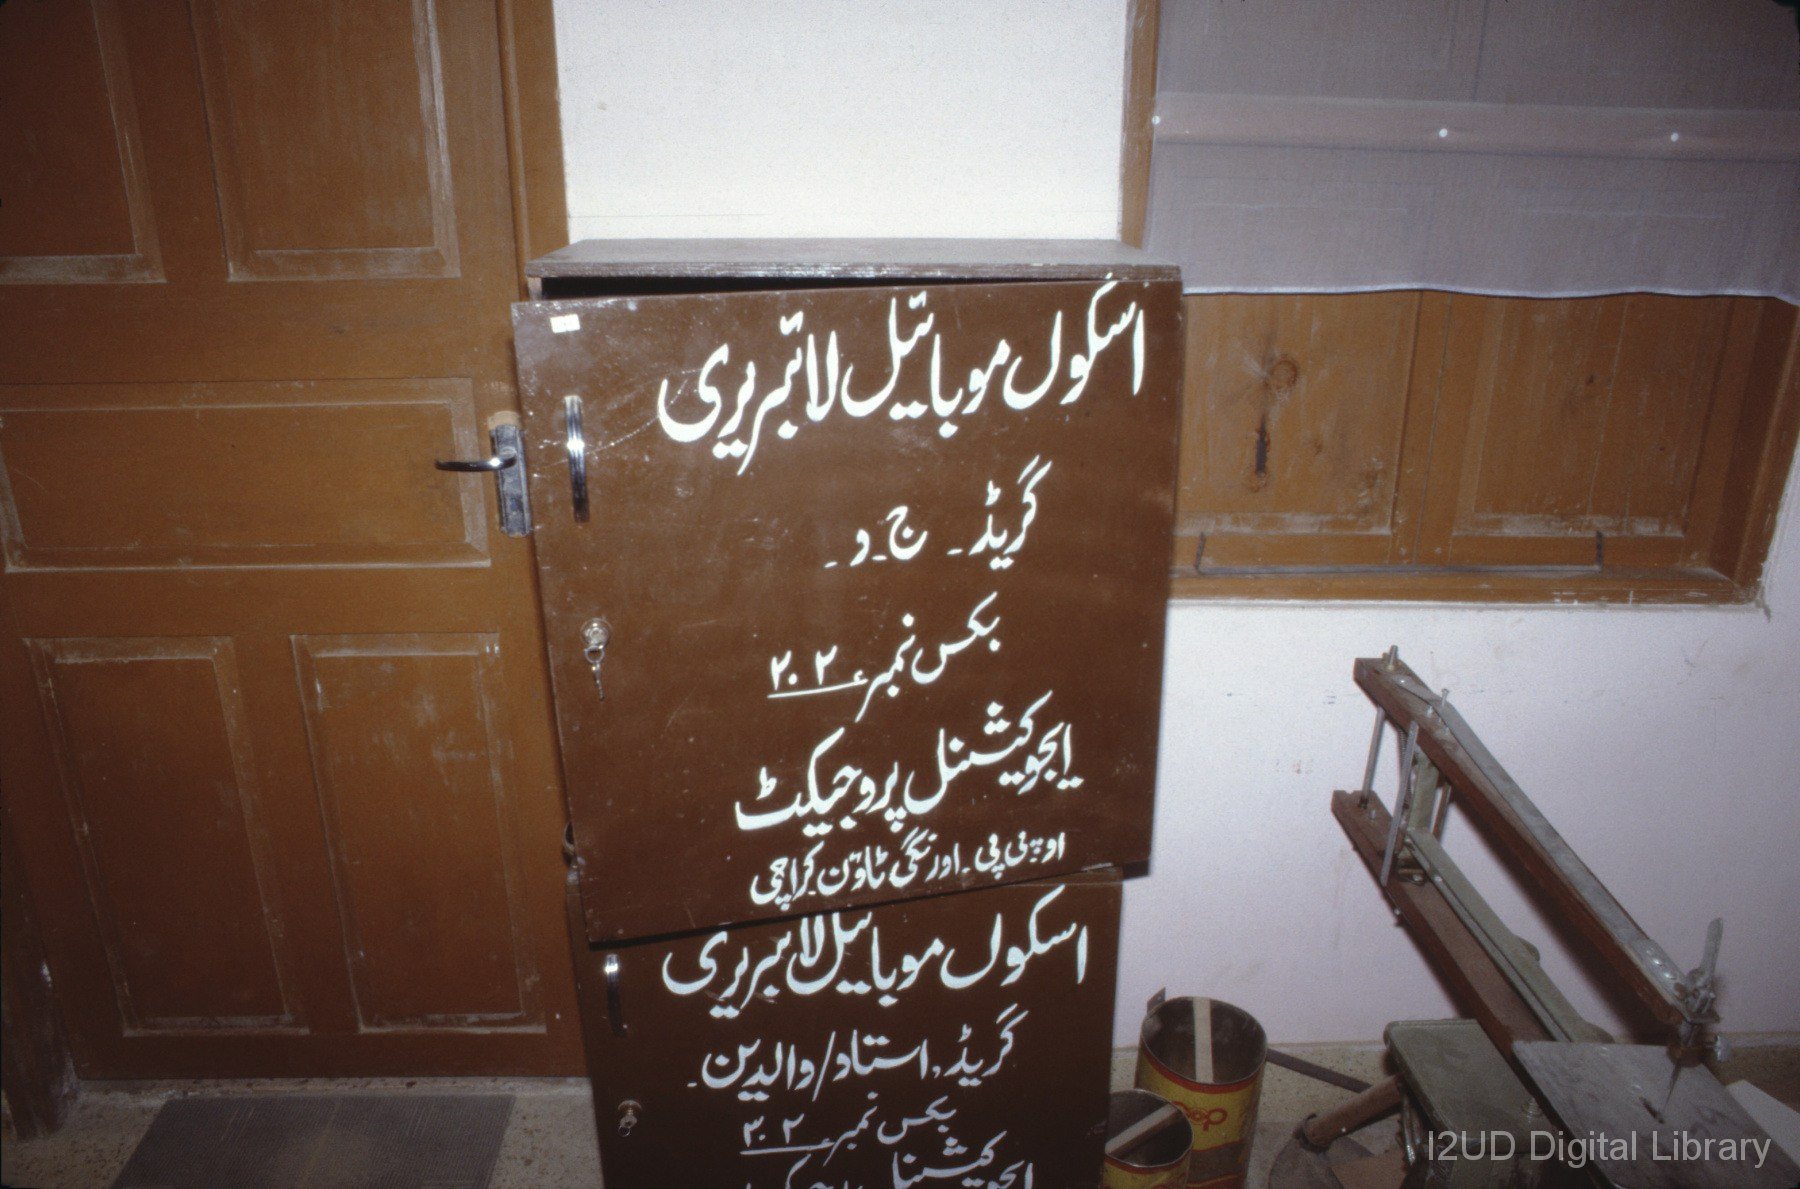 اسکول موبائیل لائبریری
گریڈ۔ ج۔د۔
بکس نمبر ۲۰۲
ایجوکیشنل پروجیکٹ
او پی پی۔ اورنگی ٹاؤن کراچی
اسکول موبائیل لائبریری
گریڈ۔ استاد/والدین۔
بکس نمبر ۲۰۲
I2UD Digital Library